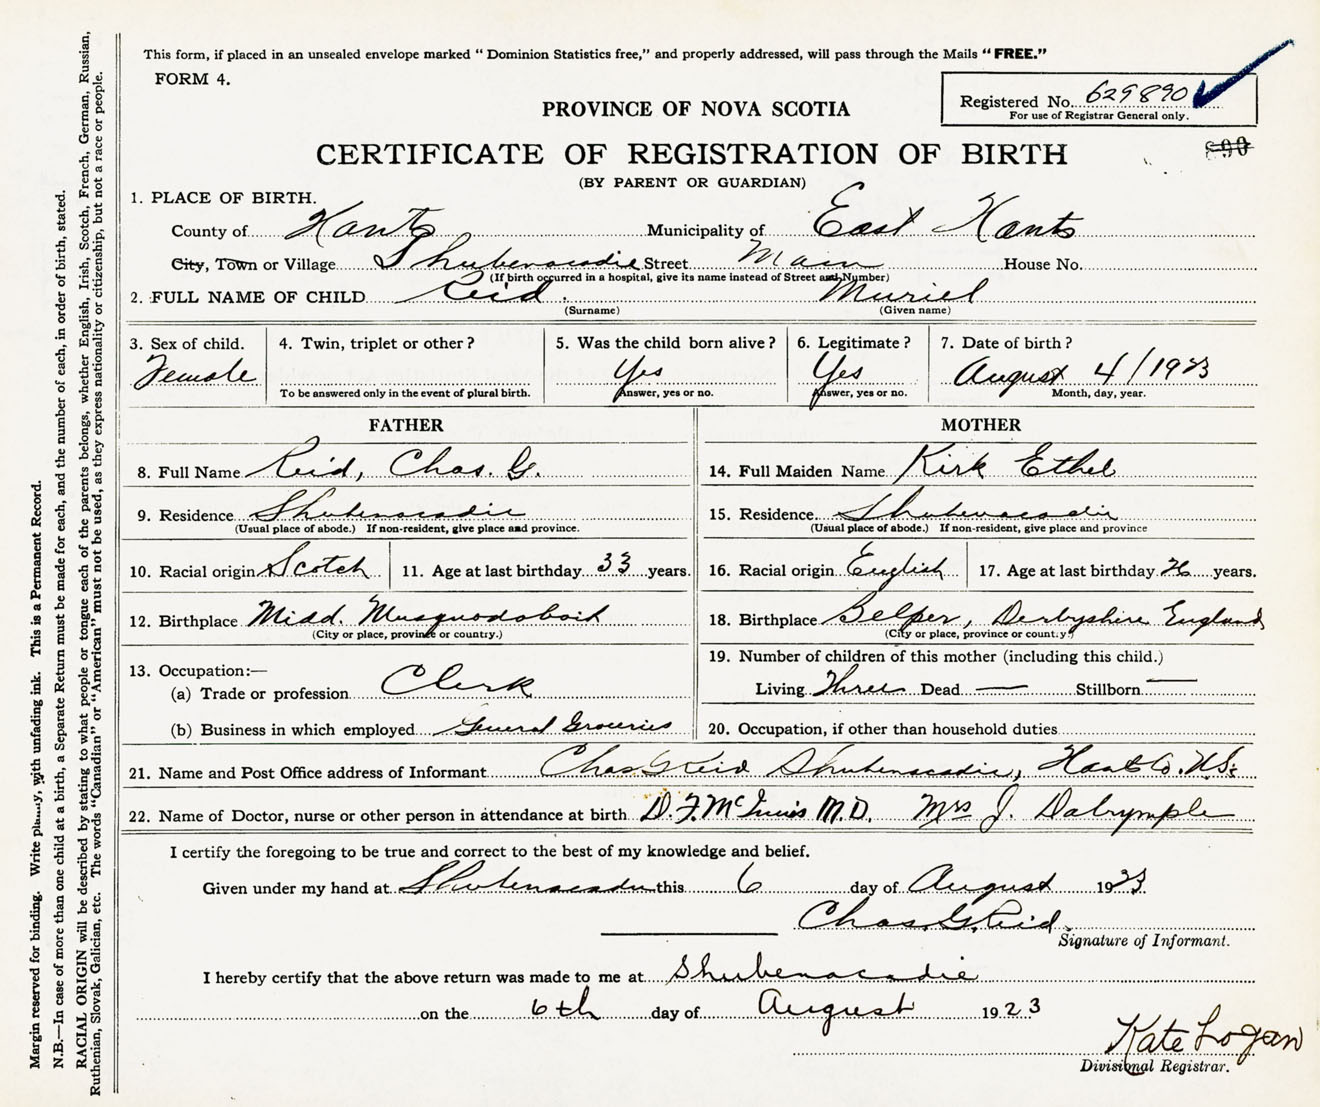 This form, if placed in an unsealed envelope marked "Dominion Statistics free," and properly addressed, will pass through the Mails "FREE."
FORM 4.
Registered No. 629890
For use of Registrar General only.
PROVINCE OF NOVA SCOTIA
CERTIFICATE OF REGISTRATION OF BIRTH
(BY PARENT OR GUARDIAN)
1. PLACE OF BIRTH.
County of Hants Municipality of East Hants
City, Town or Village Shubenacadie Street Main House No.
(If birth occurred in a hospital, give its name instead of Street and Number)
2. FULL NAME OF CHILD Reid. Muriel
(Surname) (Given name)
3. Sex of child. 4. Twin, triplet or other? 5. Was the child born alive? 6. Legitimate? 7. Date of birth?
Female Yes Yes August 4/1923
To be answered only in the event of plural birth. Answer, yes or no. Answer, yes or no. Month, day, year.
FATHER MOTHER
8. Full Name Reid, Chas. G. 14. Full Maiden Name Kirk Ethel
9. Residence Shubenacadie 15. Residence Shubenacadie
(Usual place of abode.) If non-resident, give place and province. (Usual place of abode.) If non-resident, give place and province
10. Racial origin Scotch 11. Age at last birthday 33 years. 16. Racial origin English 17. Age at last birthday years.
12. Birthplace Midd. Musquodoboit 18. Birthplace Belper, Derbyshire England
(City or place, province or country.) (City or place, province or country)
13. Occupation:— 19. Number of children of this mother (including this child.)
(a) Trade or profession Clerk Living Three Dead — Stillborn —
(b) Business in which employed General Groceries 20. Occupation, if other than household duties
21. Name and Post Office address of Informant Chas G Reid Shubenacadie, Hants Co. N.S.
22. Name of Doctor, nurse or other person in attendance at birth D. F. McInnis M.D. Mrs J. Dalrymple
I certify the foregoing to be true and correct to the best of my knowledge and belief.
Given under my hand at Shubenacadie this 6 day of August 1923
Chas. G. Reid
Signature of Informant.
I hereby certify that the above return was made to me at Shubenacadie
on the 6th day of August 1923
Kate Logan
Divisional Registrar.
Margin reserved for binding. Write plainly, with unfading ink. This is a Permanent Record.
N.B.—In case of more than one child at a birth, a Separate Return must be made for each, and the number of each, in order of birth, stated.
RACIAL ORIGIN will be described by stating to what people or tongue each of the parents belongs, whether English, Irish, Scotch, French, German, Russian,
Ruthenian, Slovak, Galician, etc. The words "Canadian" or "American" must not be used, as they express nationality or citizenship, but not a race or people.